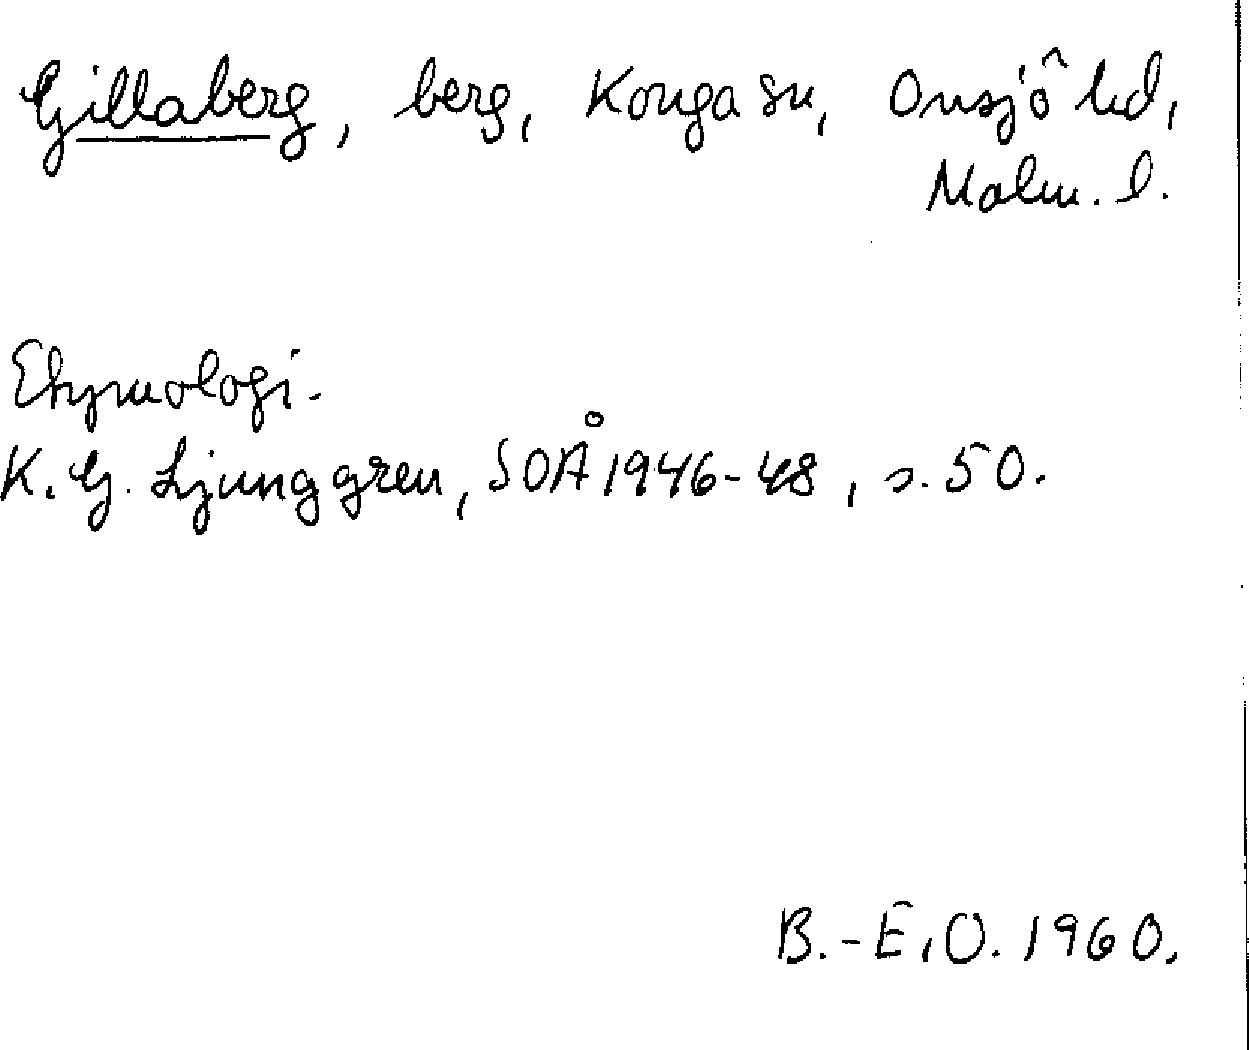 Gillaberg, berg, Konga sn, Onsjö hd,
Malm. l.
Etymologi.
K. G. Ljunggren, SOÅ 1946-48, s. 50.
B.-E. O. 1960.